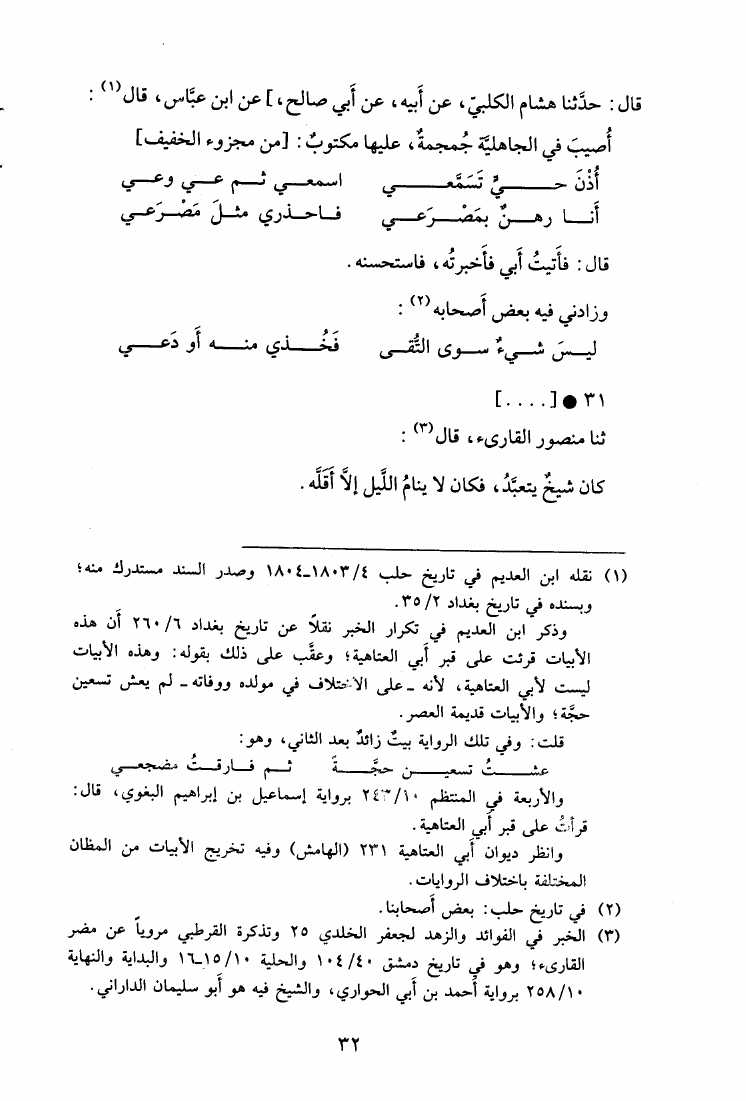 قال: حدَّثنا هشام الكلبيّ، عن أَبيه، عن أَبي صالح،] عن ابن عبَّاس، قال(١):
أُصيبَ في الجاهليَّة جُمجمةٌ، عليها مكتوبٌ: [من مجزوء الخفيف]
أُذْنَ حـــــيٍّ تَسَمَّعـــــــي اسمعـــي ثـــم عـــي وعـــي
أَنـــا رهـــنٌ بمَصْـــرَعـــي فـاحـذري مثـلَ مَصْـرَعي
قال: فأَتيتُ أَبي فأَخبرتُه، فاستحسنه.
وزادني فيه بعض أَصحابه(٢):
ليـسَ شـيءٌ سـوى التُّقـى فَخُـــذي منـــه أَو دَعـــي
٣١ ● [....]
ثنا منصور القارىء، قال(٣):
كان شيخٌ يتعبَّدُ، فكان لا ينامُ اللَّيل إلاَّ أَقلَّه.
(١) نقله ابن العديم في تاريخ حلب ٤/١٨٠٣ـ١٨٠٤ وصدر السند مستدرك منه؛
وبسنده في تاريخ بغداد ٢/٣٥.
وذكر ابن العديم في تكرار الخبر نقلاً عن تاريخ بغداد ٦/٢٦٠ أَن هذه
الأبيات قرئت على قبر أَبي العتاهية؛ وعقَّب على ذلك بقوله: وهذه الأبيات
ليست لأبي العتاهية، لأنه ـ على الاختلاف في مولده ووفاته ـ لم يعش تسعين
حجَّة؛ والأبيات قديمة العصر.
قلت: وفي تلك الرواية بيتٌ زائدٌ بعد الثاني، وهو:
عشـــتُ تسعيـــن حجَّـــةً ثـــم فـــارقـــتُ مضجعـــي
والأربعة في المنتظم ١٠/٢٤٣ برواية إسماعيل بن إبراهيم البغوي، قال:
قرأتُ على قبر أَبي العتاهية.
وانظر ديوان أَبي العتاهية ٢٣١ (الهامش) وفيه تخريج الأبيات من المظان
المختلفة باختلاف الروايات.
(٢) في تاريخ حلب: بعض أَصحابنا.
(٣) الخبر في الفوائد والزهد لجعفر الخلدي ٢٥ وتذكرة القرطبي مروياً عن مضر
القارىء؛ وهو في تاريخ دمشق ٤٠/١٠٤ والحلية ١٠/١٥ـ١٦ والبداية والنهاية
١٠/٢٥٨ برواية أَحمد بن أَبي الحواري، والشيخ فيه هو أَبو سليمان الداراني.
٣٢